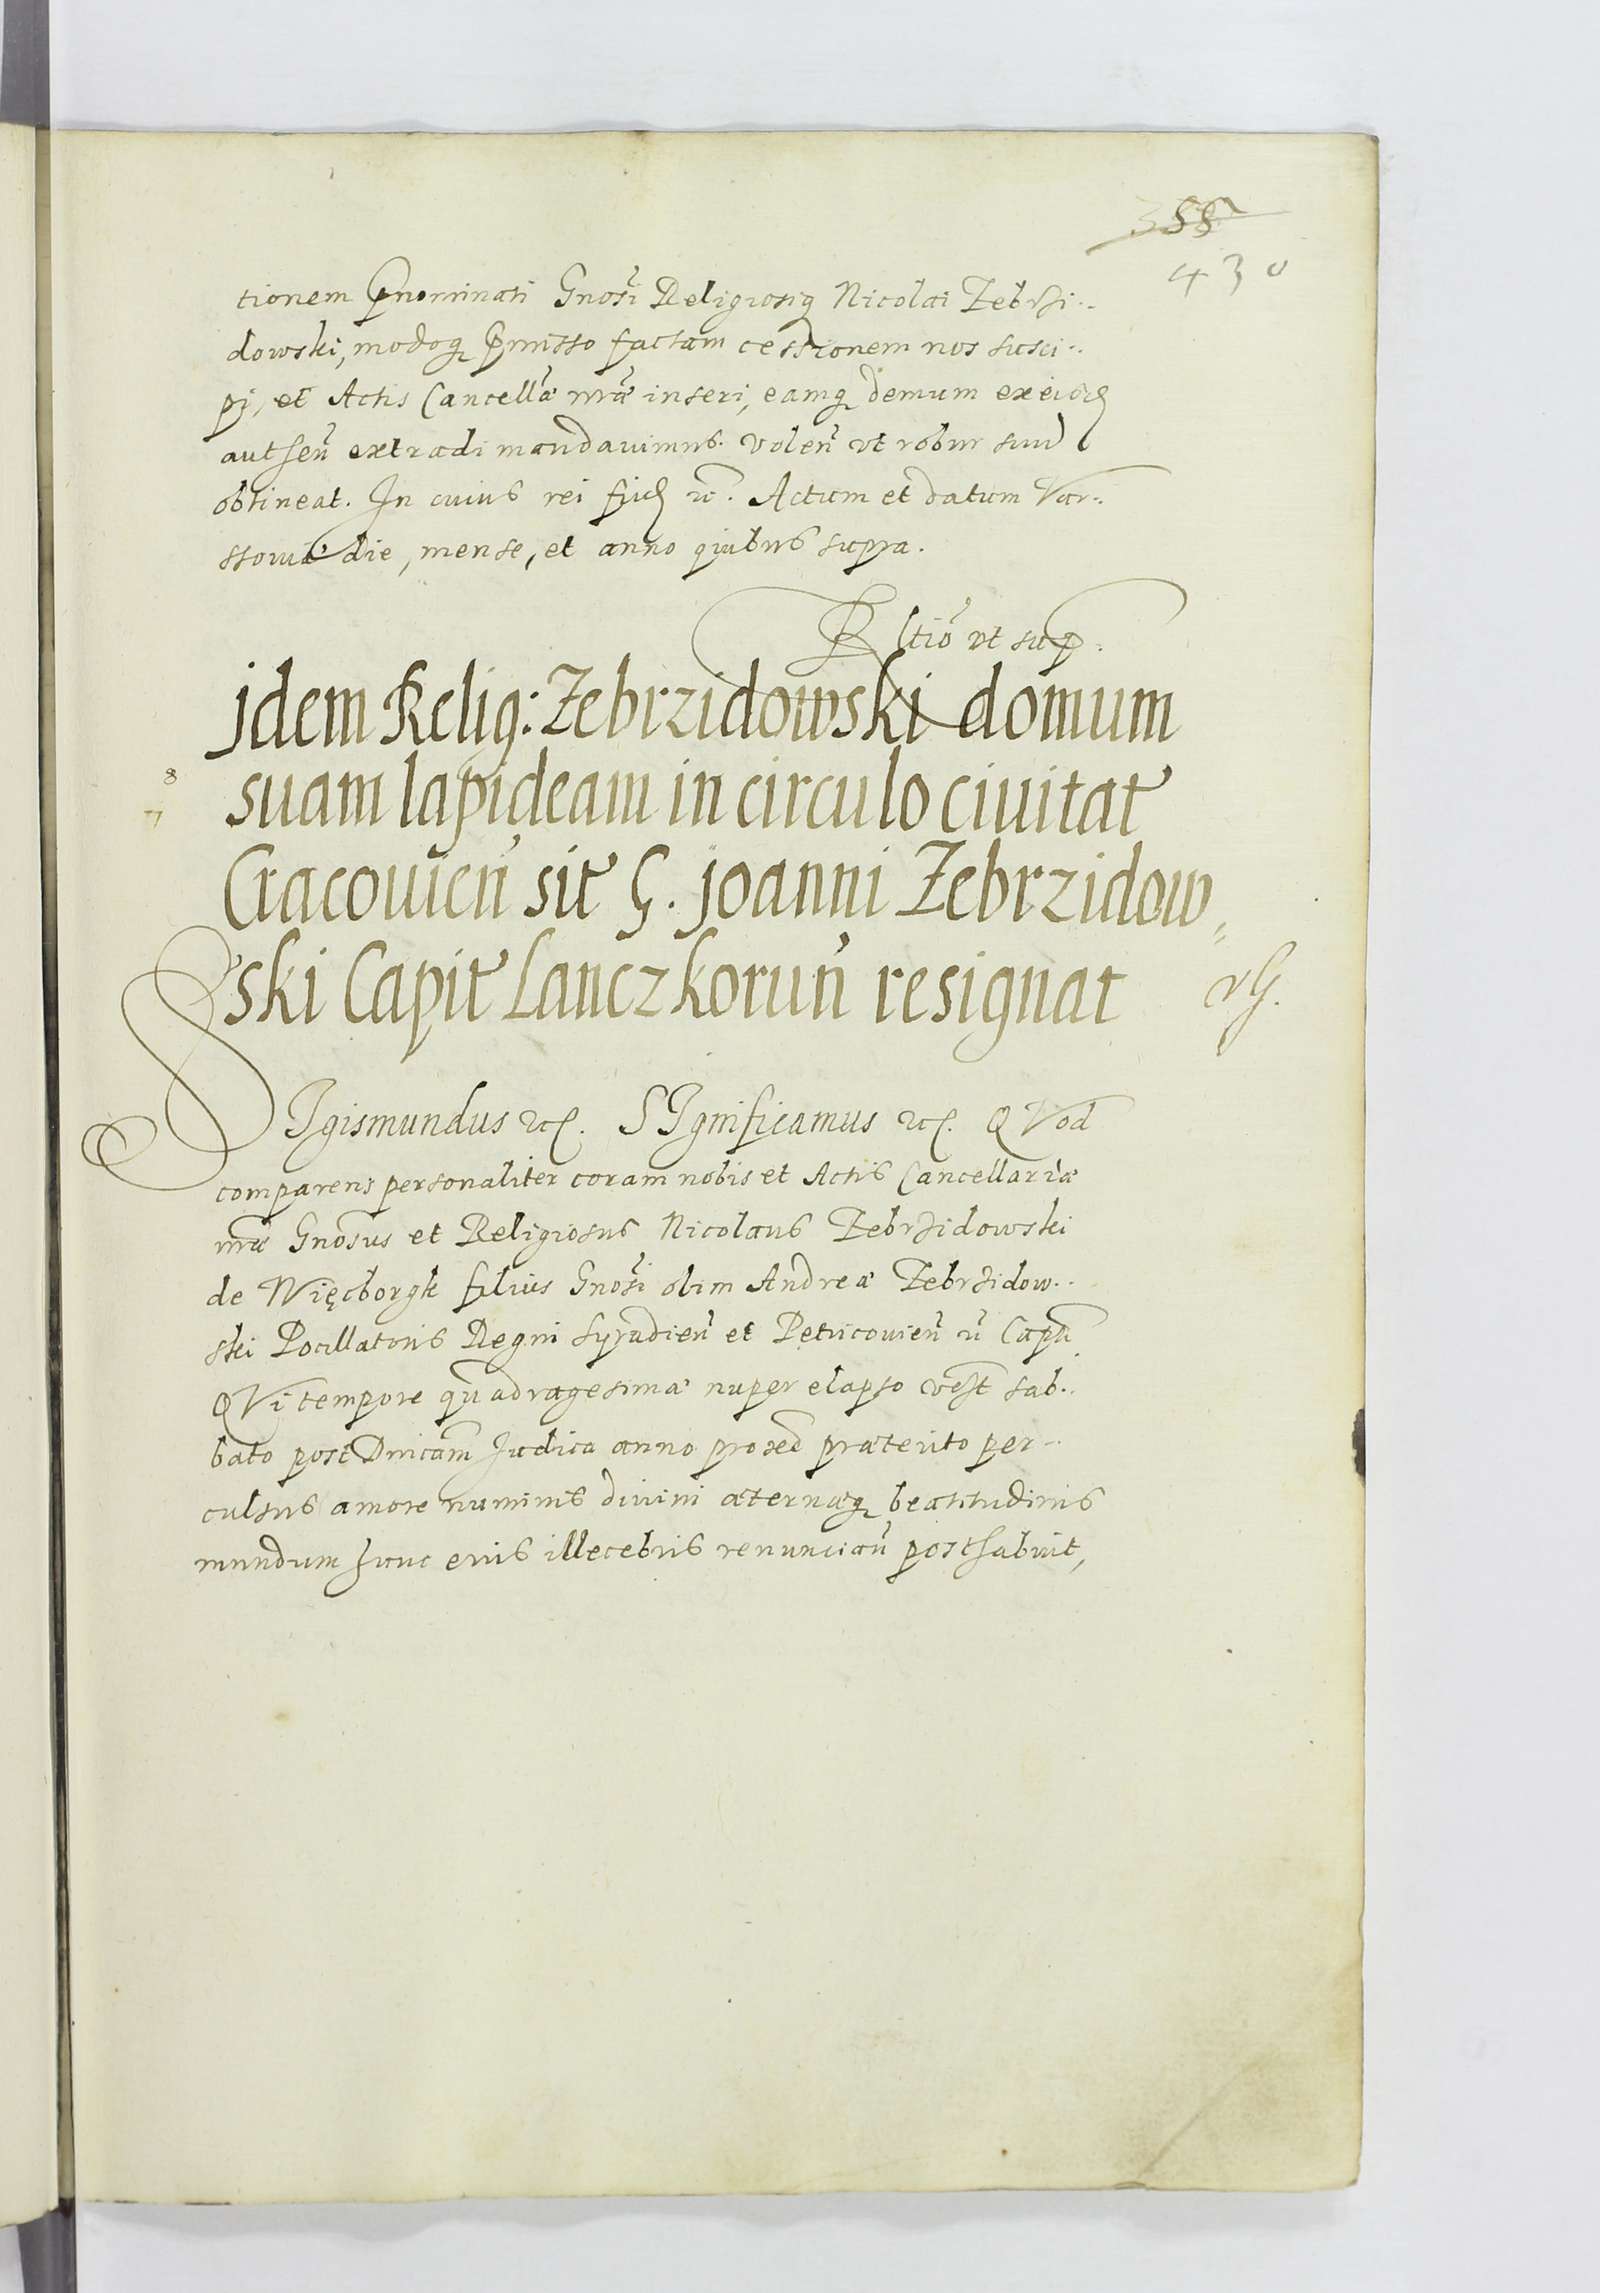 355
430
tionem Pnominati Gnosi Religiosiq Nicolai Zebrzi..
dowski, modoq Pmisso factam cessionem nos susci..
pi, et Actis Cancellæ nræ inseri, eamq demum ex eisd
authen extradi mandavimus. Volen vt robur suu
obtineat. In cuius rei fid rc. Actum et datum Var..
ssoviæ die, mense, et anno quibus supra.
Rltio vt sup.
Idem Relig: Zebrzidowski domum
suam lapideam in circulo civitat
Cracovien sit G. Joanni Zebrzidow
ski Capit Lanczkorun resignat
SIgismundus rc. SIgnificamus rc. QVod
comparens personaliter coram nobis et Actis Cancellariæ
nræ Gnosus et Religiosus Nicolaus Zebrzidowski
de Więcborgk filius Gnosi olim Andreæ Zebrzidow..
ski Pocillatoris Regni Syradien et Petricovien rc Capit
QVi tempore quadragesimæ nuper elapso vest sab..
bato post Dnicam Judica anno proxe præterito per..
culsus amore numinis divini æternæq beatitudinis
mundum huic eius illecebris renuncian posthabuit,